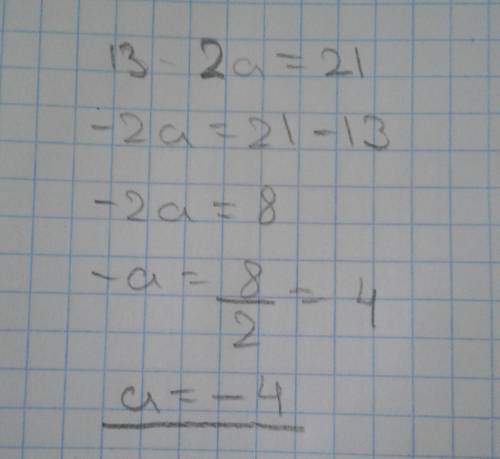 13 - 2a = 21
-2a = 21 - 13
-2a = 8
-a = 8/2 = 4
a = -4